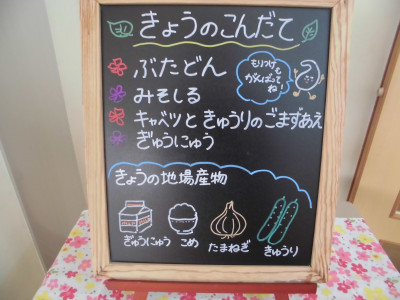 きょうのこんだて
ぶたどん
もりつけも
がんばって
ね!
みそしる
キャベツときゅうりのごまずあえ
ぎゅうにゅう
きょうの地場産物
ぎゅうにゅう
こめ
たまねぎ
きゅうり